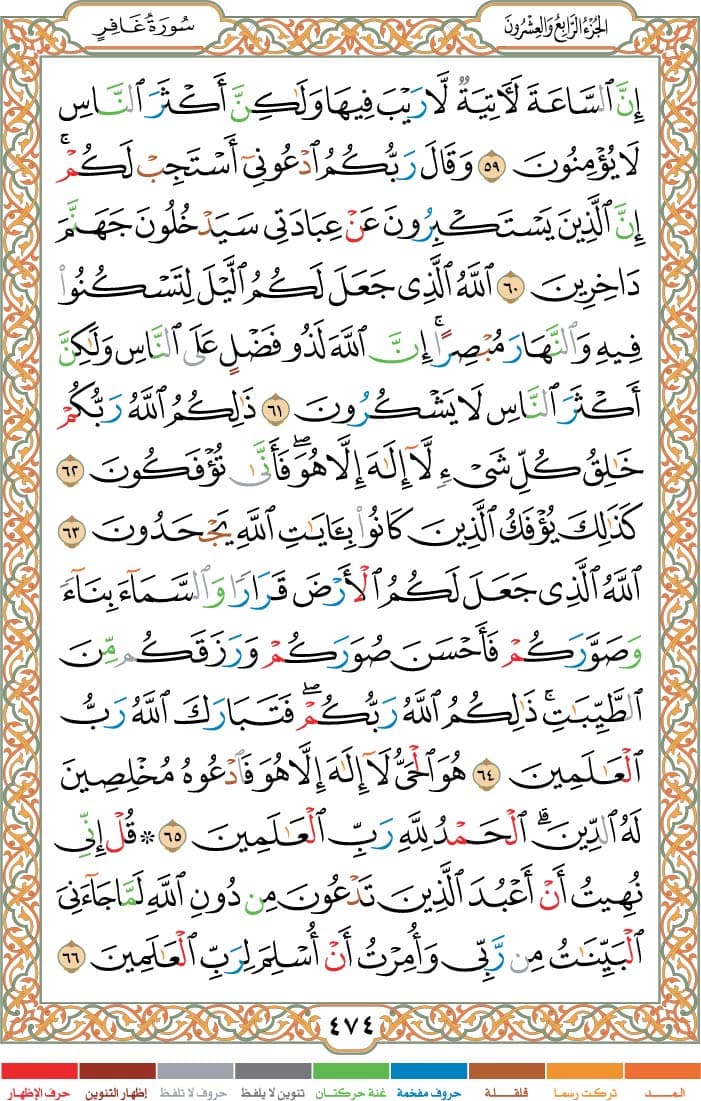 الجزء الرابع والعشرون
سورة غافر
إِنَّ ٱلسَّاعَةَ لَأٓتِيَةٌ لَّا رَيْبَ فِيهَا وَلَٰكِنَّ أَكْثَرَ ٱلنَّاسِ
لَا يُؤْمِنُونَ ٥٩ وَقَالَ رَبُّكُمُ ٱدْعُونِىٓ أَسْتَجِبْ لَكُمْ ۚ
إِنَّ ٱلَّذِينَ يَسْتَكْبِرُونَ عَنْ عِبَادَتِى سَيَدْخُلُونَ جَهَنَّمَ
دَاخِرِينَ ٦٠ ٱللَّهُ ٱلَّذِى جَعَلَ لَكُمُ ٱلَّيْلَ لِتَسْكُنُوا۟
فِيهِ وَٱلنَّهَارَ مُبْصِرًا ۚ إِنَّ ٱللَّهَ لَذُو فَضْلٍ عَلَى ٱلنَّاسِ وَلَٰكِنَّ
أَكْثَرَ ٱلنَّاسِ لَا يَشْكُرُونَ ٦١ ذَٰلِكُمُ ٱللَّهُ رَبُّكُمْ
خَٰلِقُ كُلِّ شَىْءٍ لَّآ إِلَٰهَ إِلَّا هُوَ ۖ فَأَنَّىٰ تُؤْفَكُونَ ٦٢
كَذَٰلِكَ يُؤْفَكُ ٱلَّذِينَ كَانُوا۟ بِـَٔايَٰتِ ٱللَّهِ يَجْحَدُونَ ٦٣
ٱللَّهُ ٱلَّذِى جَعَلَ لَكُمُ ٱلْأَرْضَ قَرَارًا وَٱلسَّمَآءَ بِنَآءً
وَصَوَّرَكُمْ فَأَحْسَنَ صُوَرَكُمْ وَرَزَقَكُم مِّنَ
ٱلطَّيِّبَٰتِ ۚ ذَٰلِكُمُ ٱللَّهُ رَبُّكُمْ ۖ فَتَبَارَكَ ٱللَّهُ رَبُّ
ٱلْعَٰلَمِينَ ٦٤ هُوَ ٱلْحَىُّ لَآ إِلَٰهَ إِلَّا هُوَ فَٱدْعُوهُ مُخْلِصِينَ
لَهُ ٱلدِّينَ ۗ ٱلْحَمْدُ لِلَّهِ رَبِّ ٱلْعَٰلَمِينَ ٦٥ * قُلْ إِنِّى
نُهِيتُ أَنْ أَعْبُدَ ٱلَّذِينَ تَدْعُونَ مِن دُونِ ٱللَّهِ لَمَّا جَآءَنِىَ
ٱلْبَيِّنَٰتُ مِن رَّبِّى وَأُمِرْتُ أَنْ أُسْلِمَ لِرَبِّ ٱلْعَٰلَمِينَ ٦٦
٤٧٤
المــــد تركت رسما قلقلـة حروف مفخمة غنة حركتـان تنوين لا يلفظ حروف لا تلفظ إظهار التنوين حرف الإظهار